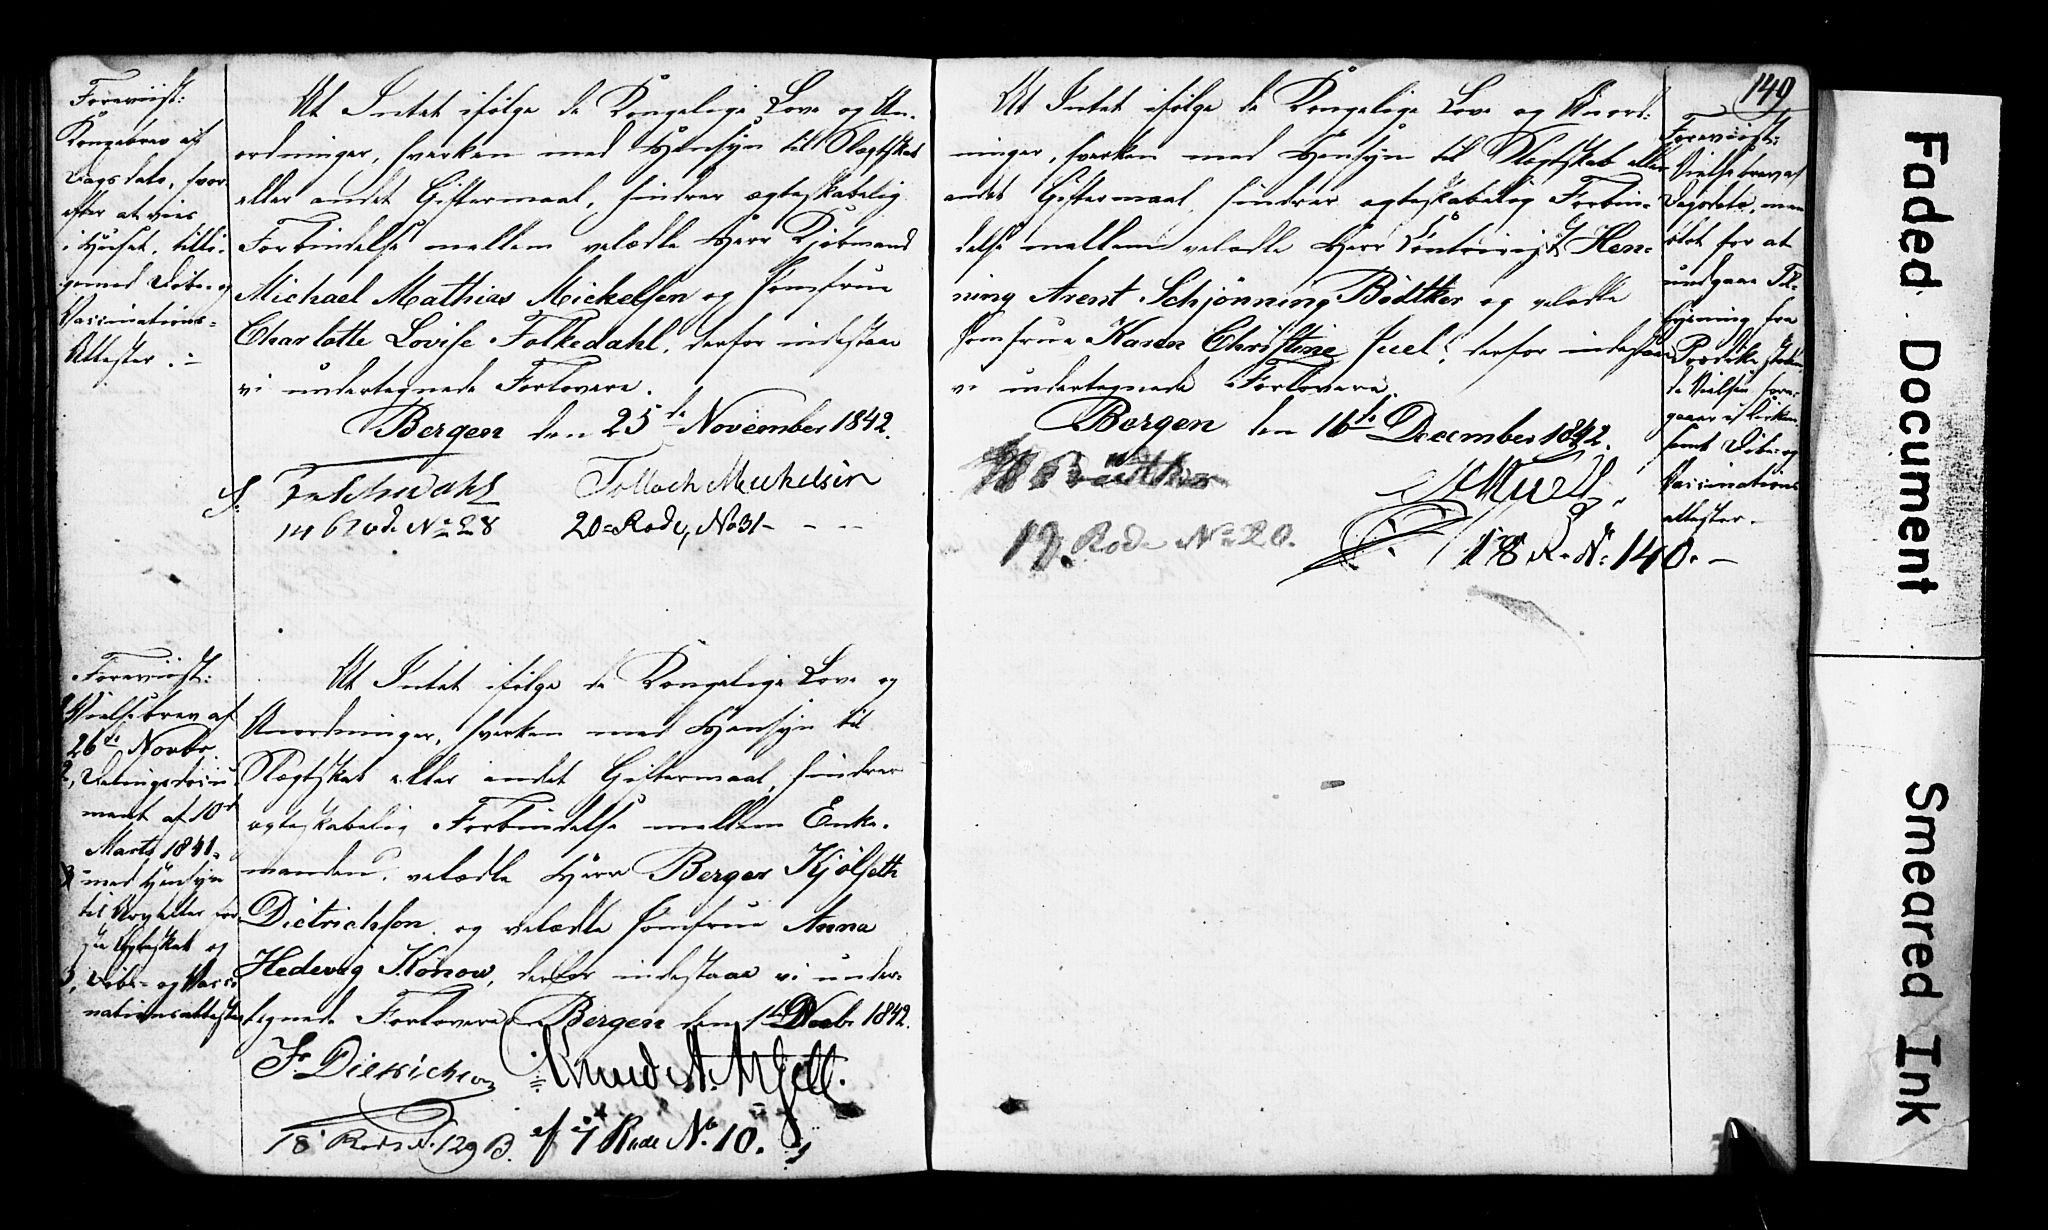 Foreviist:
Kongebrev af
Dags dato, hvor-
efter at vies
i Huset, tilli-
gemed Døbe- og
Vaccinations-
Attester.
At Intet ifølge de Kongelige Love og An-
ordninger, hverken med Hensyn til Slægtskab
eller andet Giftermaal, hindrer ægteskabelig
Forbindelse mellem velædle Herr Kjøbmand
Michael Mathias Mickelsen og Jomfrue
Charlotte Lovise Folkedahl, derfor indestaae
vi undertegnede Forlovere.
Bergen den 25de November 1842.
Tolloch Mickelsen
14 Rode No 28 20=Rode, No 31 - - -
Foreviist:
1, Vielsebrev af
26de Novbr
2,
ment af 10d
Marts 1841
med Hensyn
til Arv efter for-
Ægteskab og
3, Døbe- og Vacci-
nationsattester
At Intet ifølge de Kongelige Love og
Anordninger, hverken med Hensyn til
Slægtskab eller andet Giftermaal, hindrer
ægteskabelig Forbindelse mellem Enke-
manden, velædle Herr Berger Kjølseth
Dietrichson og velædle Jomfrue Anna
Hedevig Konow, derfor indestaae vi under-
tegnede Forlovere Bergen den 1te 1842.
Fr Dietrichson Knud
18 Rode No. 129 B. af 7 Rode No. 10.
149
At Intet ifølge de Kongelige Love og Anord-
ninger, hverken med Hensyn til Slægtskab eller
andet Giftermaal, hindrer ægteskabelig Forbin-
delse mellem velædle Herr Hen-
ning Arent Schjønning Bødtker og velædle
Jomfrue Karen Christine Juel, derfor indestaae
vi undertegnede Forlovere.
Bergen den 16de December 1842.
Bødtker Juell
19. Rode No 20. 18 R. No: 140.
Foreviist:
Vielsebrev af
Dagsdato, men
blot for at
undgaae Til-
lysning fra
Prædike
de Vielsen fore-
gaaer i Kirken
samt Døbe- og
Vaccinations-
attester.
Faded Document
Smeared Ink